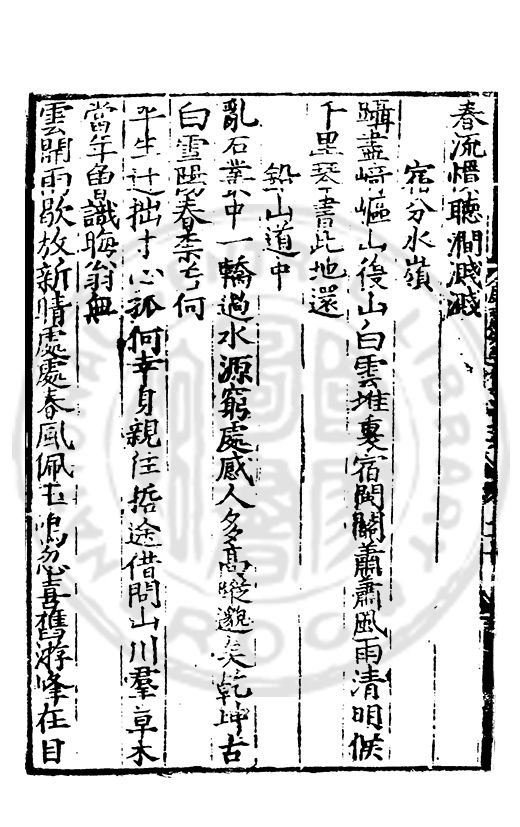 春流慣聽澗濺濺
宿分水嶺
躡盡崎嶇山後山白雲堆裏宿閩關蕭蕭風雨清明候
千里琴書此地還
鉛山道中
亂石叢中一轎過水源窮處感人多高蹤邈矣乾坤古
白雪陽春柰若何
平生迂拙寸心孤何幸身親往哲途借問山川羣草木
當年曾識晦翁無
雲開雨歇放新晴處處春風佩玉鳴忽喜舊游峰在目